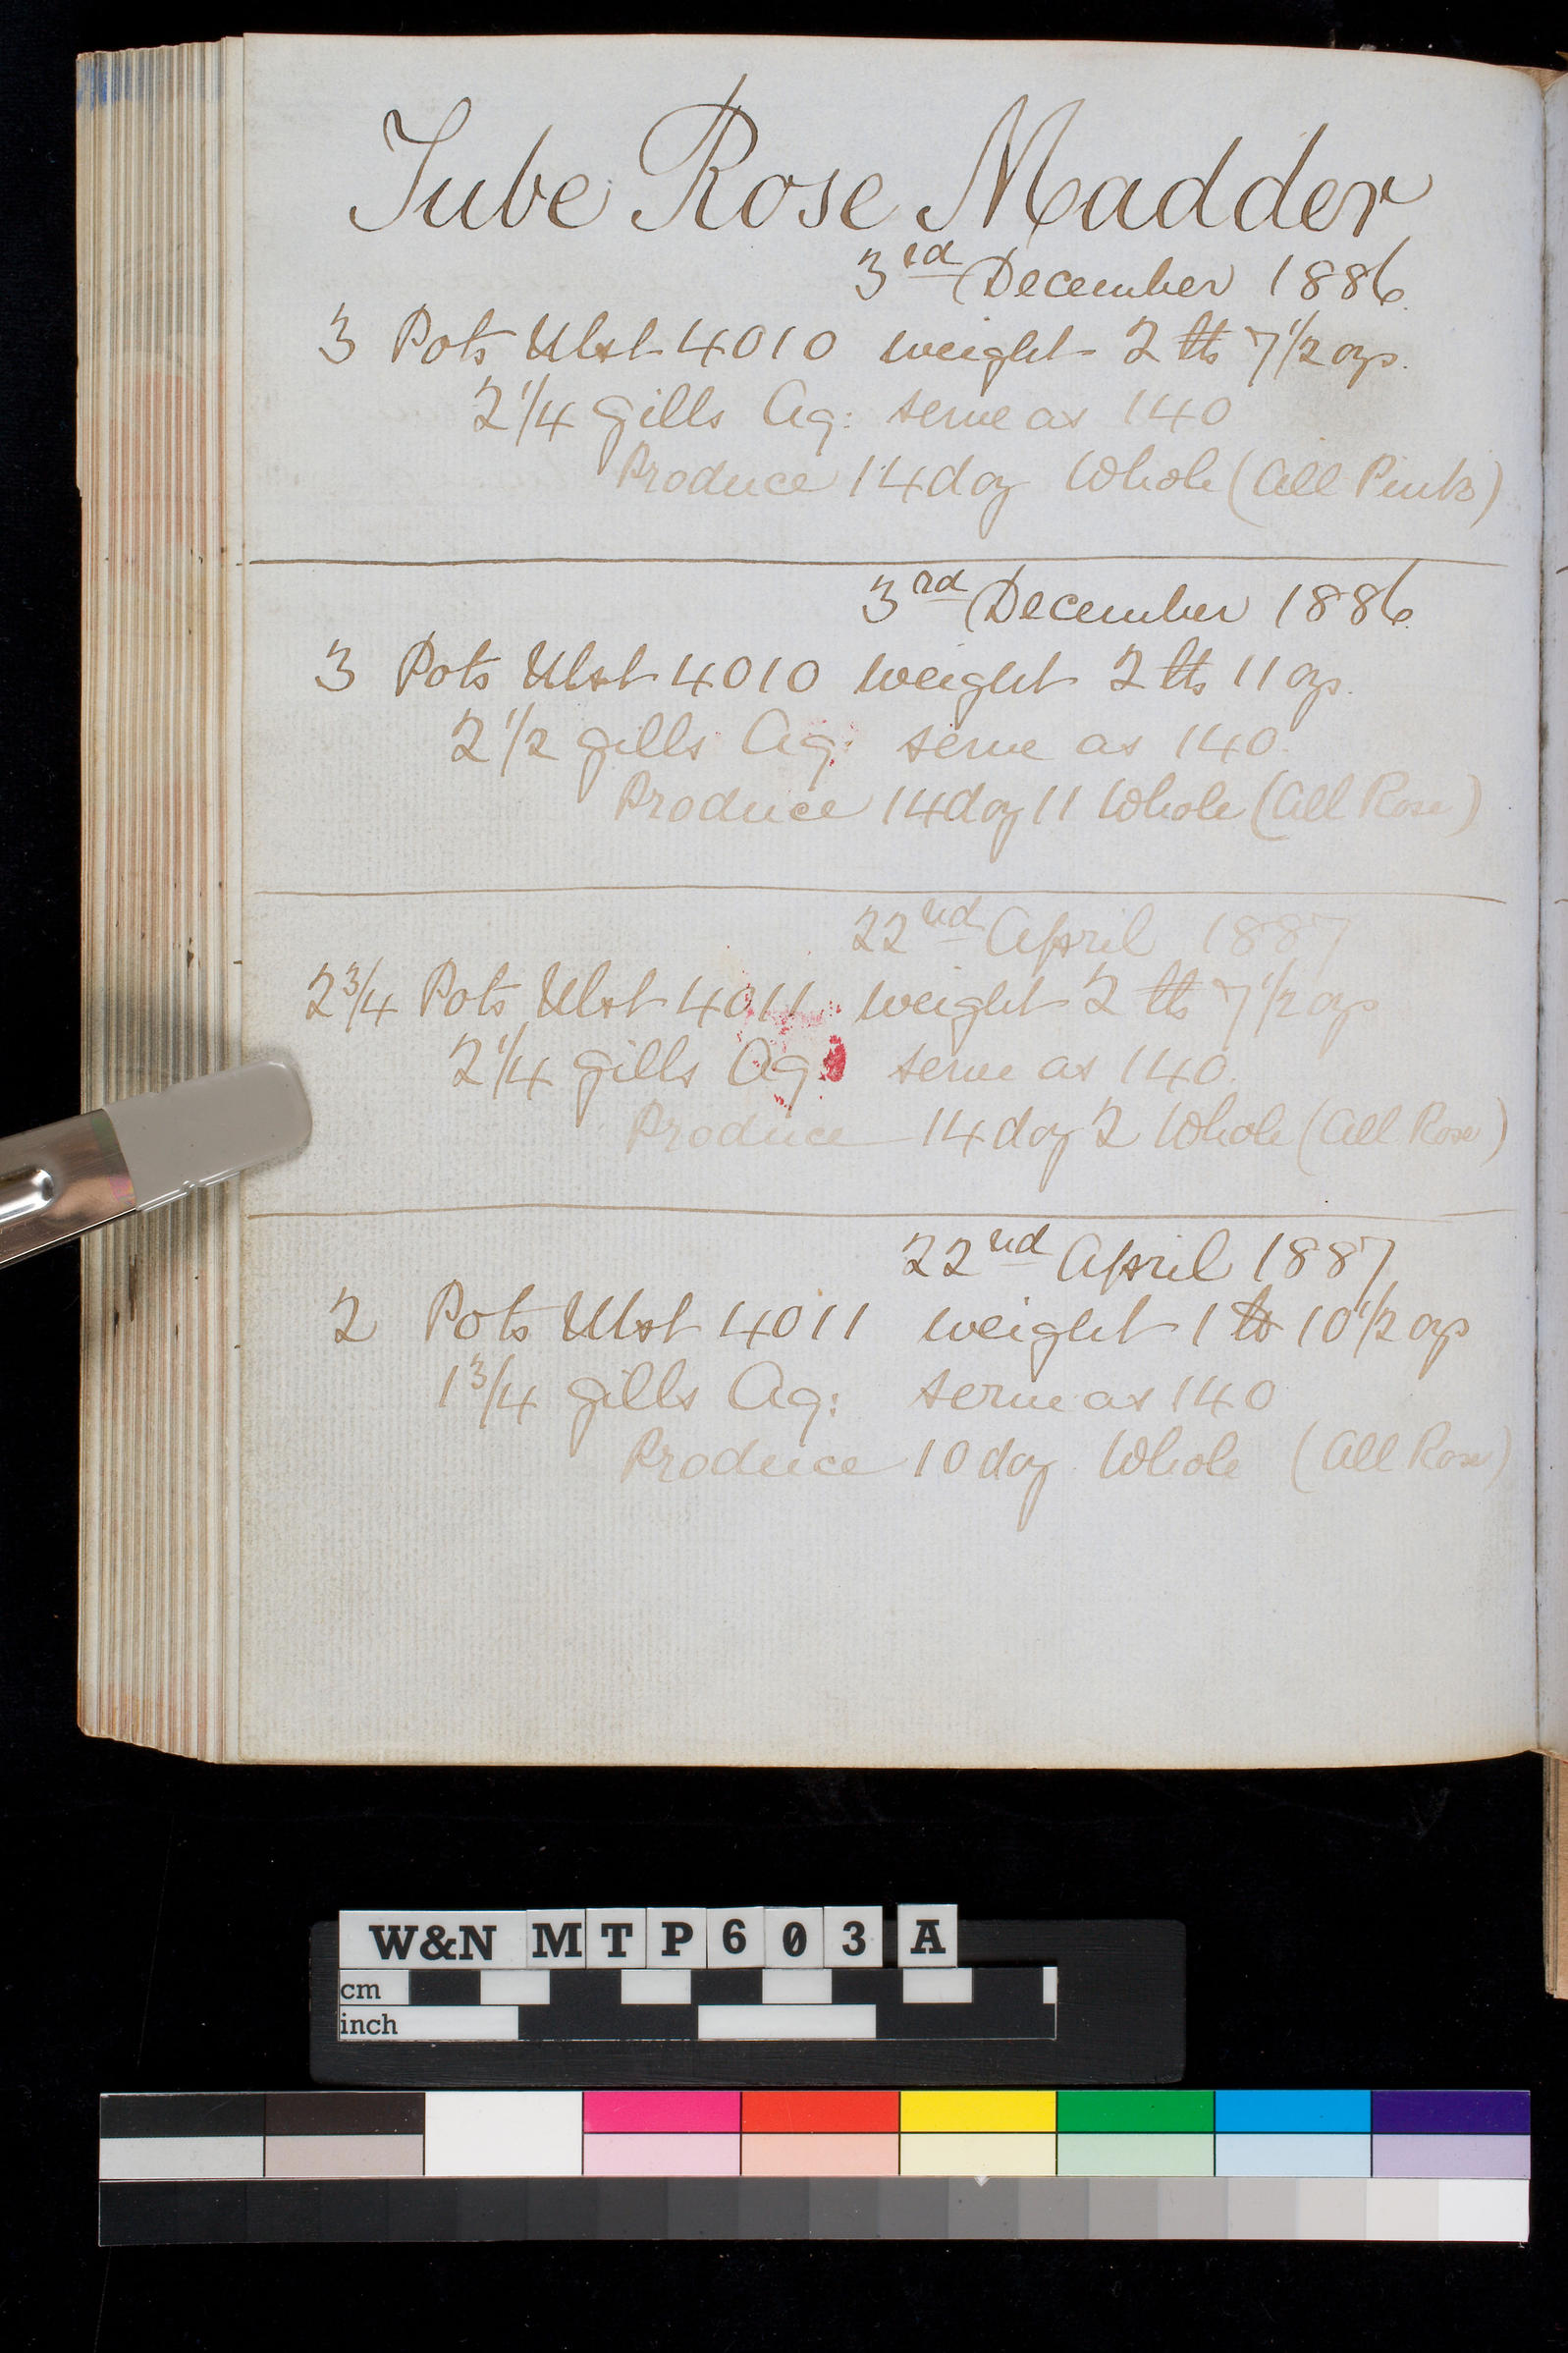 Tube Rose Madder
3rd December 1886.
3 Pots Ulst 4010 weight 2 lbs 7 1/2 ozs.
2 1/4 gills Aq: serve as 140
Produce 14 doz Whole (All Pink)
3rd December 1886.
3 Pots Ulst 4010 weight 2 lbs 11 ozs.
2 1/2 gills Aq: serve as 140
Produce 14 doz 11 Whole (All Rose)
22nd April 1887
2 3/4 Pots Ulst 4011 weight 2 lbs 7 1/2 ozs
2 1/4 gills Aq: serve as 140.
Produce 14 doz 2 Whole (All Rose)
22nd April 1887
2 Pots Ulst 4011 weight 1 lb 10 1/2 ozs
1 3/4 gills Aq: serve as 140
Produce 10 doz Whole (All Rose)
W&N MTP603 A
cm
inch